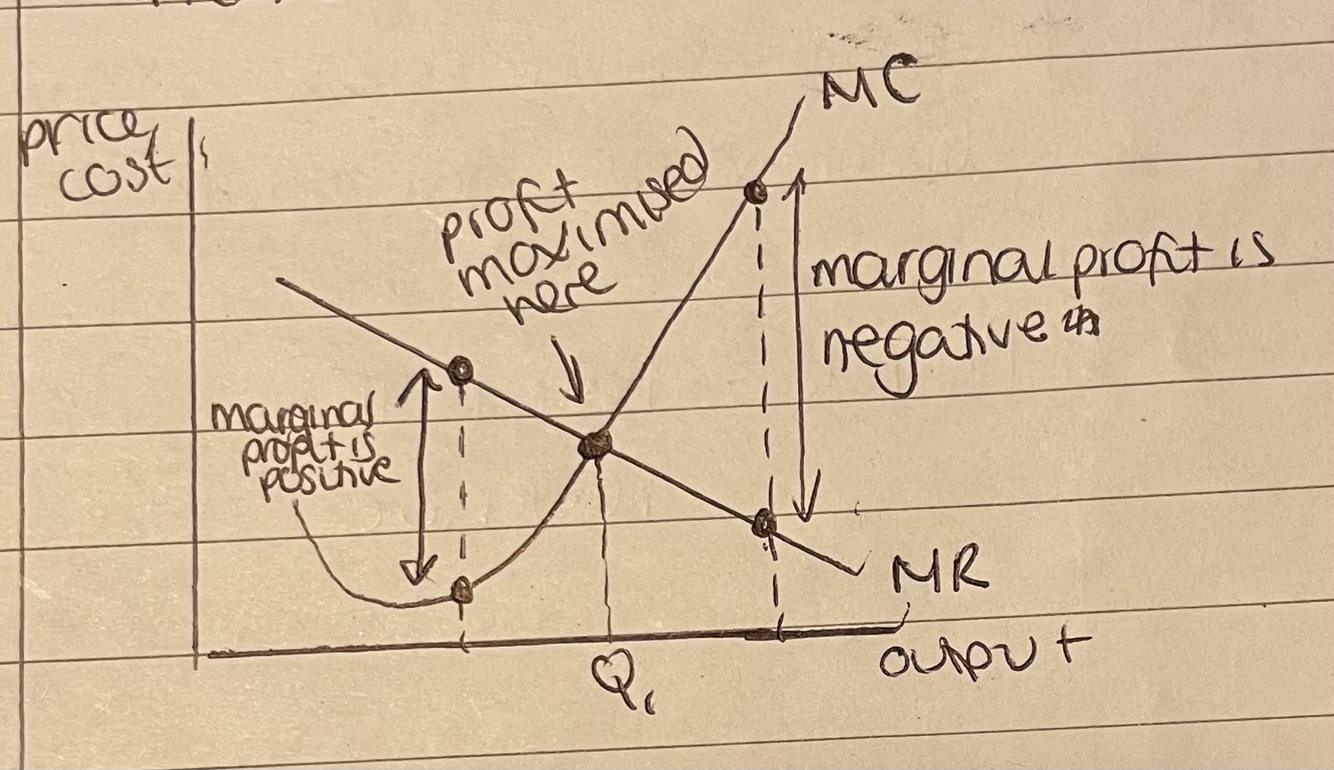 price,
cost
MC
profit
maximised
here
marginal profit is
negative
marginal
profit is
positive
MR
Q1
output